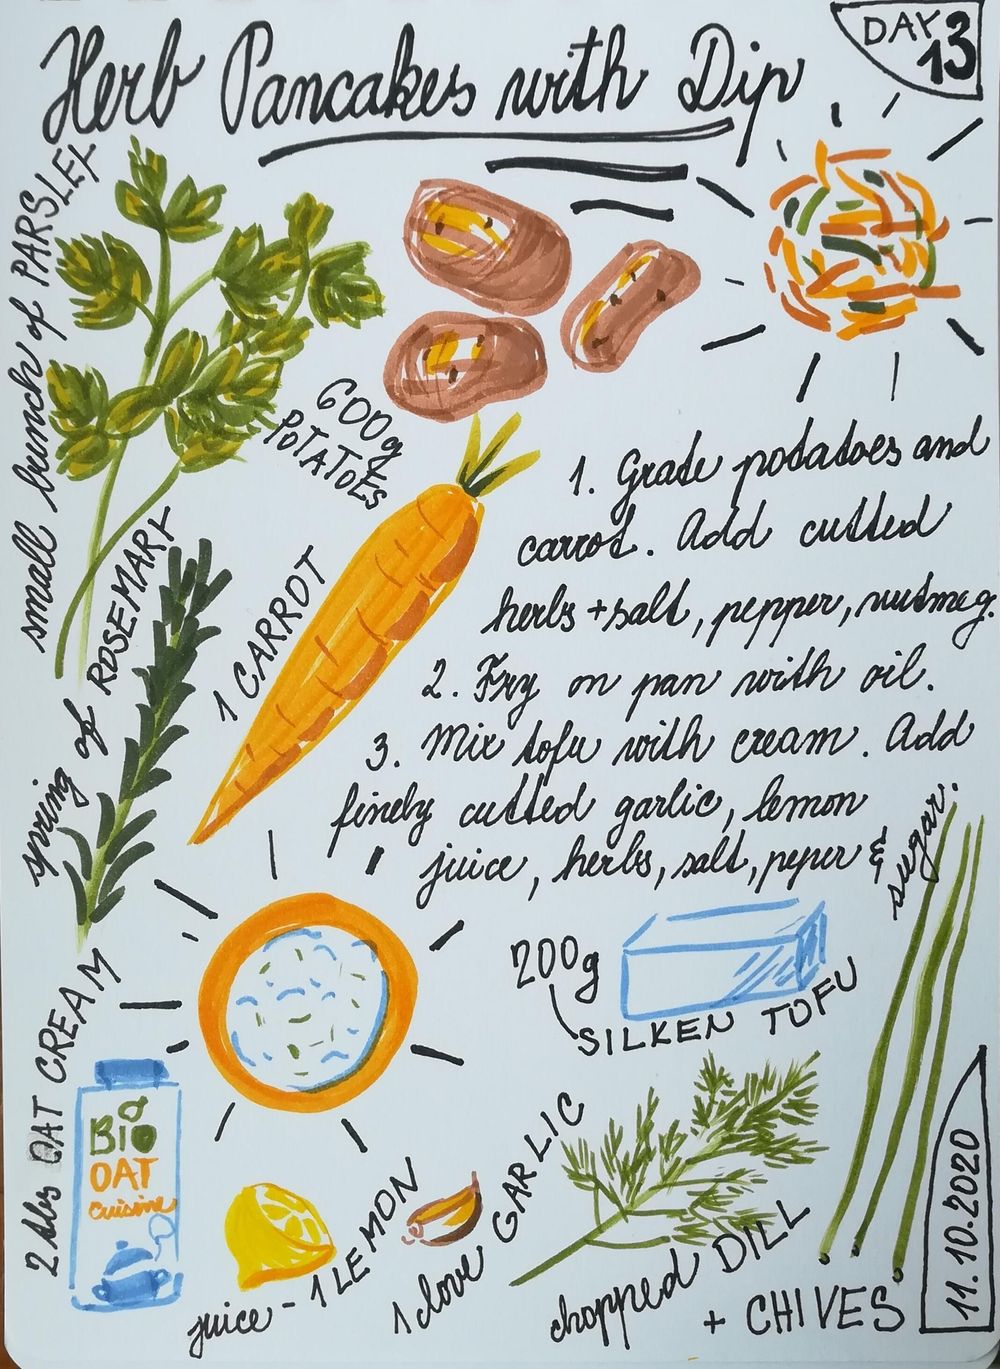 Herb Pancakes with Dip
DAY 13
small bunch of PARSLEY
600g
POTATOES
spring of ROSEMARY
1 CARROT
1. Grate potatoes and
carrot. Add cutted
herbs + salt, pepper, nutmeg.
2. Fry on pan with oil.
3. Mix tofu with cream. Add
finely cutted garlic, lemon
juice, herbs, salt, peper &
sugar.
2 tbs OAT CREAM
BiO
OAT
cuisine
200g
SILKEN TOFU
juice - 1 LEMON
1 clove GARLIC
chopped DILL
+ CHIVES
11.10.2020